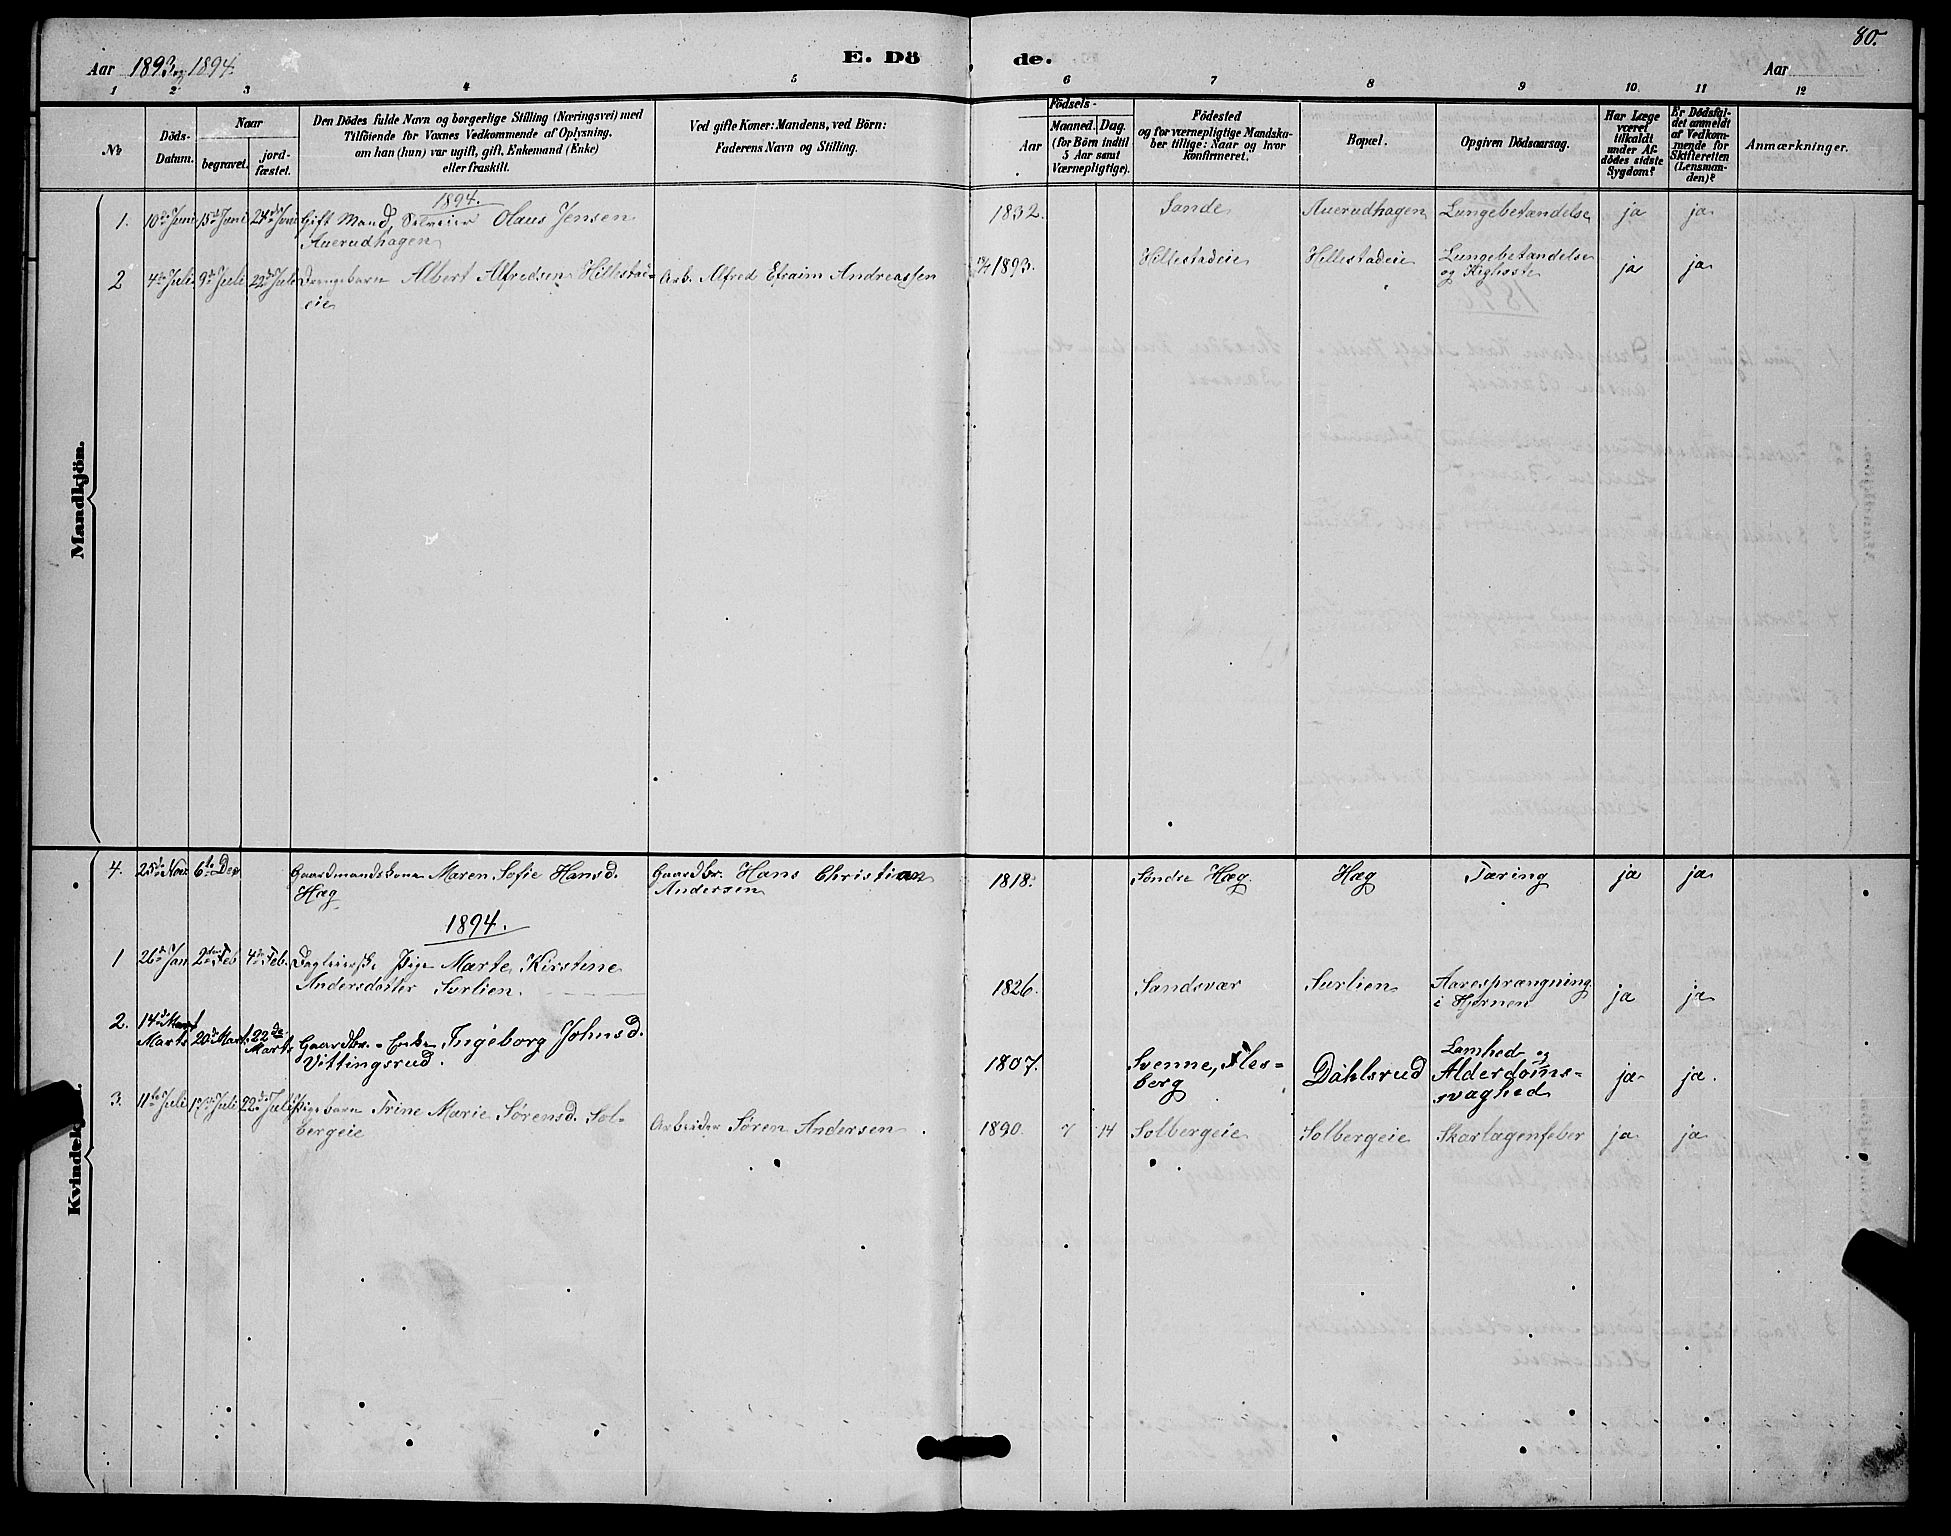 Aar 1893 og 1894.
E. Dö
de.
80.
Aar
1 2 3 4 5 6 7 8 9 10. 11 12
№
Döds-
Datum.
Naar
begravet.
jord-
fæstet.
Den Dödes fulde Navn og borgerlige Stilling (Næringsvei) med
Tilföiende for Voxnes Vedkommende af Oplysning,
om han (hun) var ugift, gift, Enkemand (Enke)
eller fraskilt.
Ved gifte Koner: Mandens, ved Börn:
Faderens Navn og Stilling.
Födsels-
Aar
Maaned.
Dag.
(for Börn indtil
5 Aar samt
Værnepligtige).
Födested
og for værnepligtige Mandska-
ber tillige: Naar og hvor
konfirmeret.
Bopæl.
Opgiven Dödsaarsag.
Har Læge
været
tilkaldt
under Af-
dödes sidste
Sygdom?
Er Dödsfal-
det anmeldt
af Vedkom-
mende for
Skifteretten
(Lensman-
den)?
Anmærkninger.
Mandkjön.
1894.
1. 10de Juni 15de Juni 24de Juni Gift Mand, Selveier Olaus Jensen 1832. Sande Auerudhagen Lungebetændelse ja ja
Auerudhagen
2 4de Juli 9de Juli 22de Juli Drengebarn Albert Alfredsen Hillestad- Arb. Alfred Efraim Andreassen 1893. Hillestadeie Hillestadeie Lungebetændelse ja ja
eie og Kighoste
Kvindekjön.
4. 25de Nov 6te Dec Gaardmandskone Maren Sofie Hansd. Gaardbr. Hans Christian 1818. Söndre Hæg Hæg Tæring ja ja
Hæg Andersen
1894.
1 26de Jan 2den Feb 4de Feb. Pige Marte Kirstine
Andersdatter Surlien. 1826. Sandsvær Surlien Aaresprængning ja ja
i Hjernen
2. 14de Marts 20de Mart. 22de Marts Gaardbr.- Enke Ingeborg Johnsd.
Vittingsrud. 1807. Svenne, Fles- Dahlsrud Lamhed og ja ja.
berg Alderdoms-
svaghed
3. 11te Juli 17de Juli 22de Juli Pigebarn Trine Marie Sørensd. Sol-
bergeie Arbeider Sören Andersen. 1890. 7 14 Solbergeie Solbergeie Skarlagenfeber ja ja